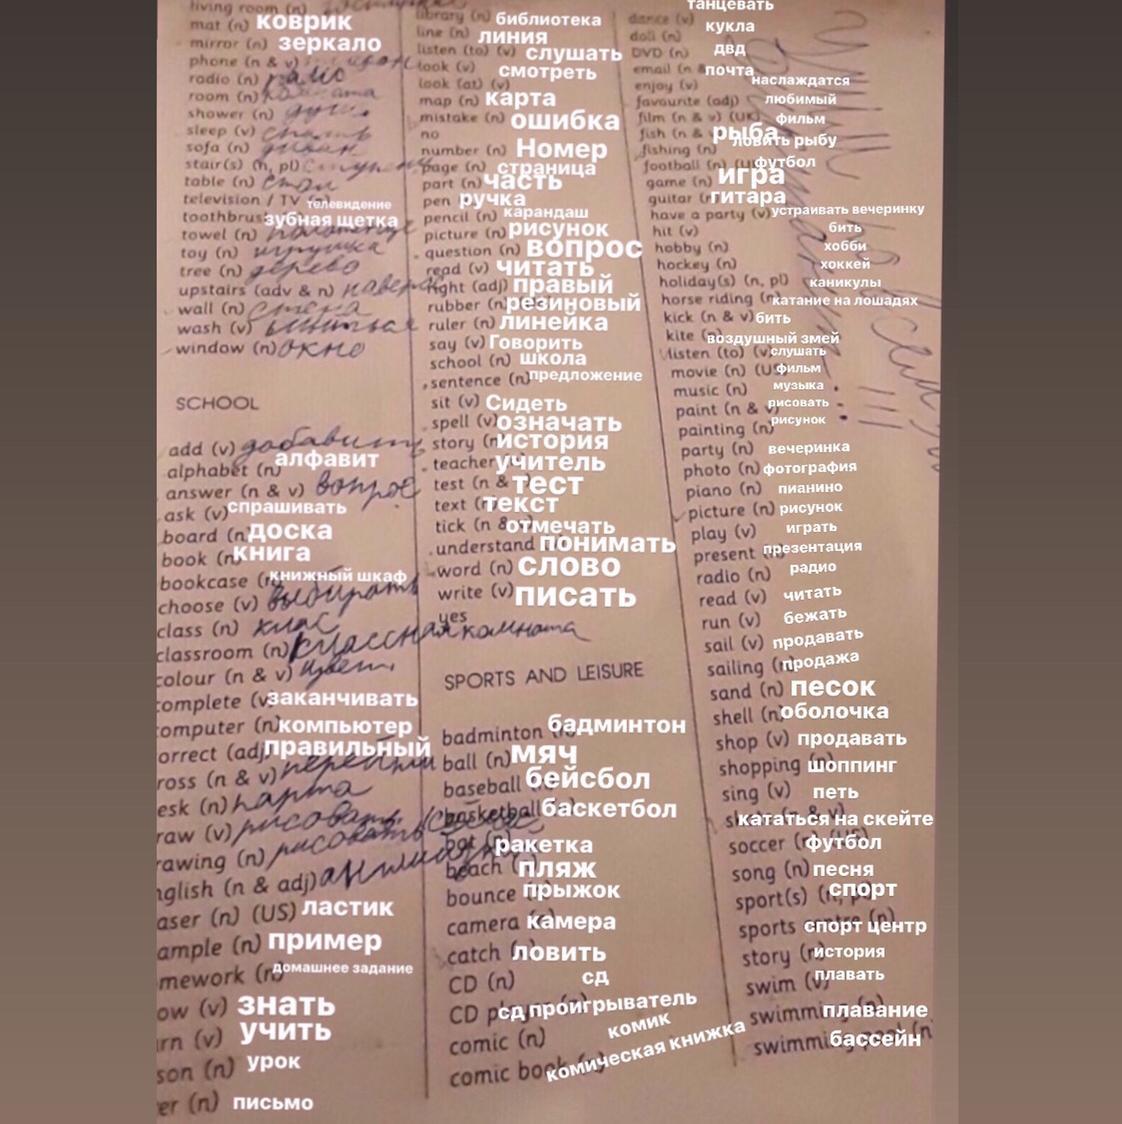 living room (n)
mat (n) коврик
mirror (n) зеркало
phone (n & v)
radio (n) радио
room (n) комната
shower (n) душ
sleep (v) спать
sofa (n) диван
stair(s) (n, pl)
table (n) стол
television / TV (n) телевидение
toothbrus зубная щетка
towel (n) полотенце
toy (n) игрушка
tree (n) дерево
upstairs (adv & n) наверх
wall (n) стена
wash (v)
window (n) окно
SCHOOL
add (v) добавить
alphabet (n) алфавит
answer (n & v) вопрос
ask (v) спрашивать
board (n) доска
book (n) книга
bookcase (n) книжный шкаф
choose (v) выбирать
class (n) класс
classroom (n) классная комната
colour (n & v) цвет
complete (v) заканчивать
omputer (n) компьютер
orrect (adj) правильный
ross (n & v) перейти
esk (n) парта
raw (v) рисовать
rawing (n) рисовать
nglish (n & adj)
aser (n) (US) ластик
ample (n) пример
mework (n) домашнее задание
ow (v) знать
rn (v) учить
son (n) урок
er (n) письмо
library (n) библиотека
line (n) линия
listen (to) (v) слушать
look (v) смотреть
look (at) (v)
map (n) карта
mistake (n) ошибка
no
number (n) Номер
page (n) страница
part (n) часть
pen ручка
pencil (n) карандаш
picture (n) рисунок
question (n) вопрос
read (v) читать
right (adj) правый
rubber (n) резиновый
ruler (n) линейка
say (v) Говорить
school (n) школа
sentence (n) предложение
sit (v) Сидеть
spell (v) означать
story (n) история
teacher учитель
test (n & тест
text (n) текст
tick (n & отмечать
understand понимать
word (n) слово
write (v) писать
yes
SPORTS AND LEISURE
badminton (n) бадминтон
ball (n) мяч
baseball бейсбол
basketball баскетбол
bat (n) ракетка
beach (n) пляж
bounce прыжок
camera камера
catch ловить
CD (n) сд
CD player (n) сд проигрыватель
comic (n) комик
comic book (n) комическая книжка
dance (v) танцевать
doll (n) кукла
DVD (n) двд
email (n & почта
enjoy (v) наслаждатся
favourite (adj) любимый
film (n & v) (UK) фильм
fish (n & рыба
fishing (n) ловить рыбу
football (n) (U футбол
game (n) игра
guitar (n) гитара
have a party (v) устраивать вечеринку
hit (v) бить
hobby (n) хобби
hockey (n) хоккей
holiday(s) (n, pl) каникулы
horse riding (n) катание на лошадях
kick (n & v) бить
kite (n) воздушный змей
listen (to) (v) слушать
movie (n) (US) фильм
music (n) музыка
paint (n & v) рисовать
painting (n) рисунок
party (n) вечеринка
photo (n) фотография
piano (n) пианино
picture (n) рисунок
play (v) играть
present (n) презентация
radio (n) радио
read (v) читать
run (v) бежать
sail (v) продавать
sailing (n) продажа
sand (n) песок
shell (n) оболочка
shop (v) продавать
shopping (n) шоппинг
sing (v) петь
кататься на скейте
soccer (n) (US) футбол
song (n) песня
sport(s) (n, pl) спорт
sports centre (n) спорт центр
story (n) история
swim (v) плавать
swimming (n) плавание
swimming pool (n бассейн